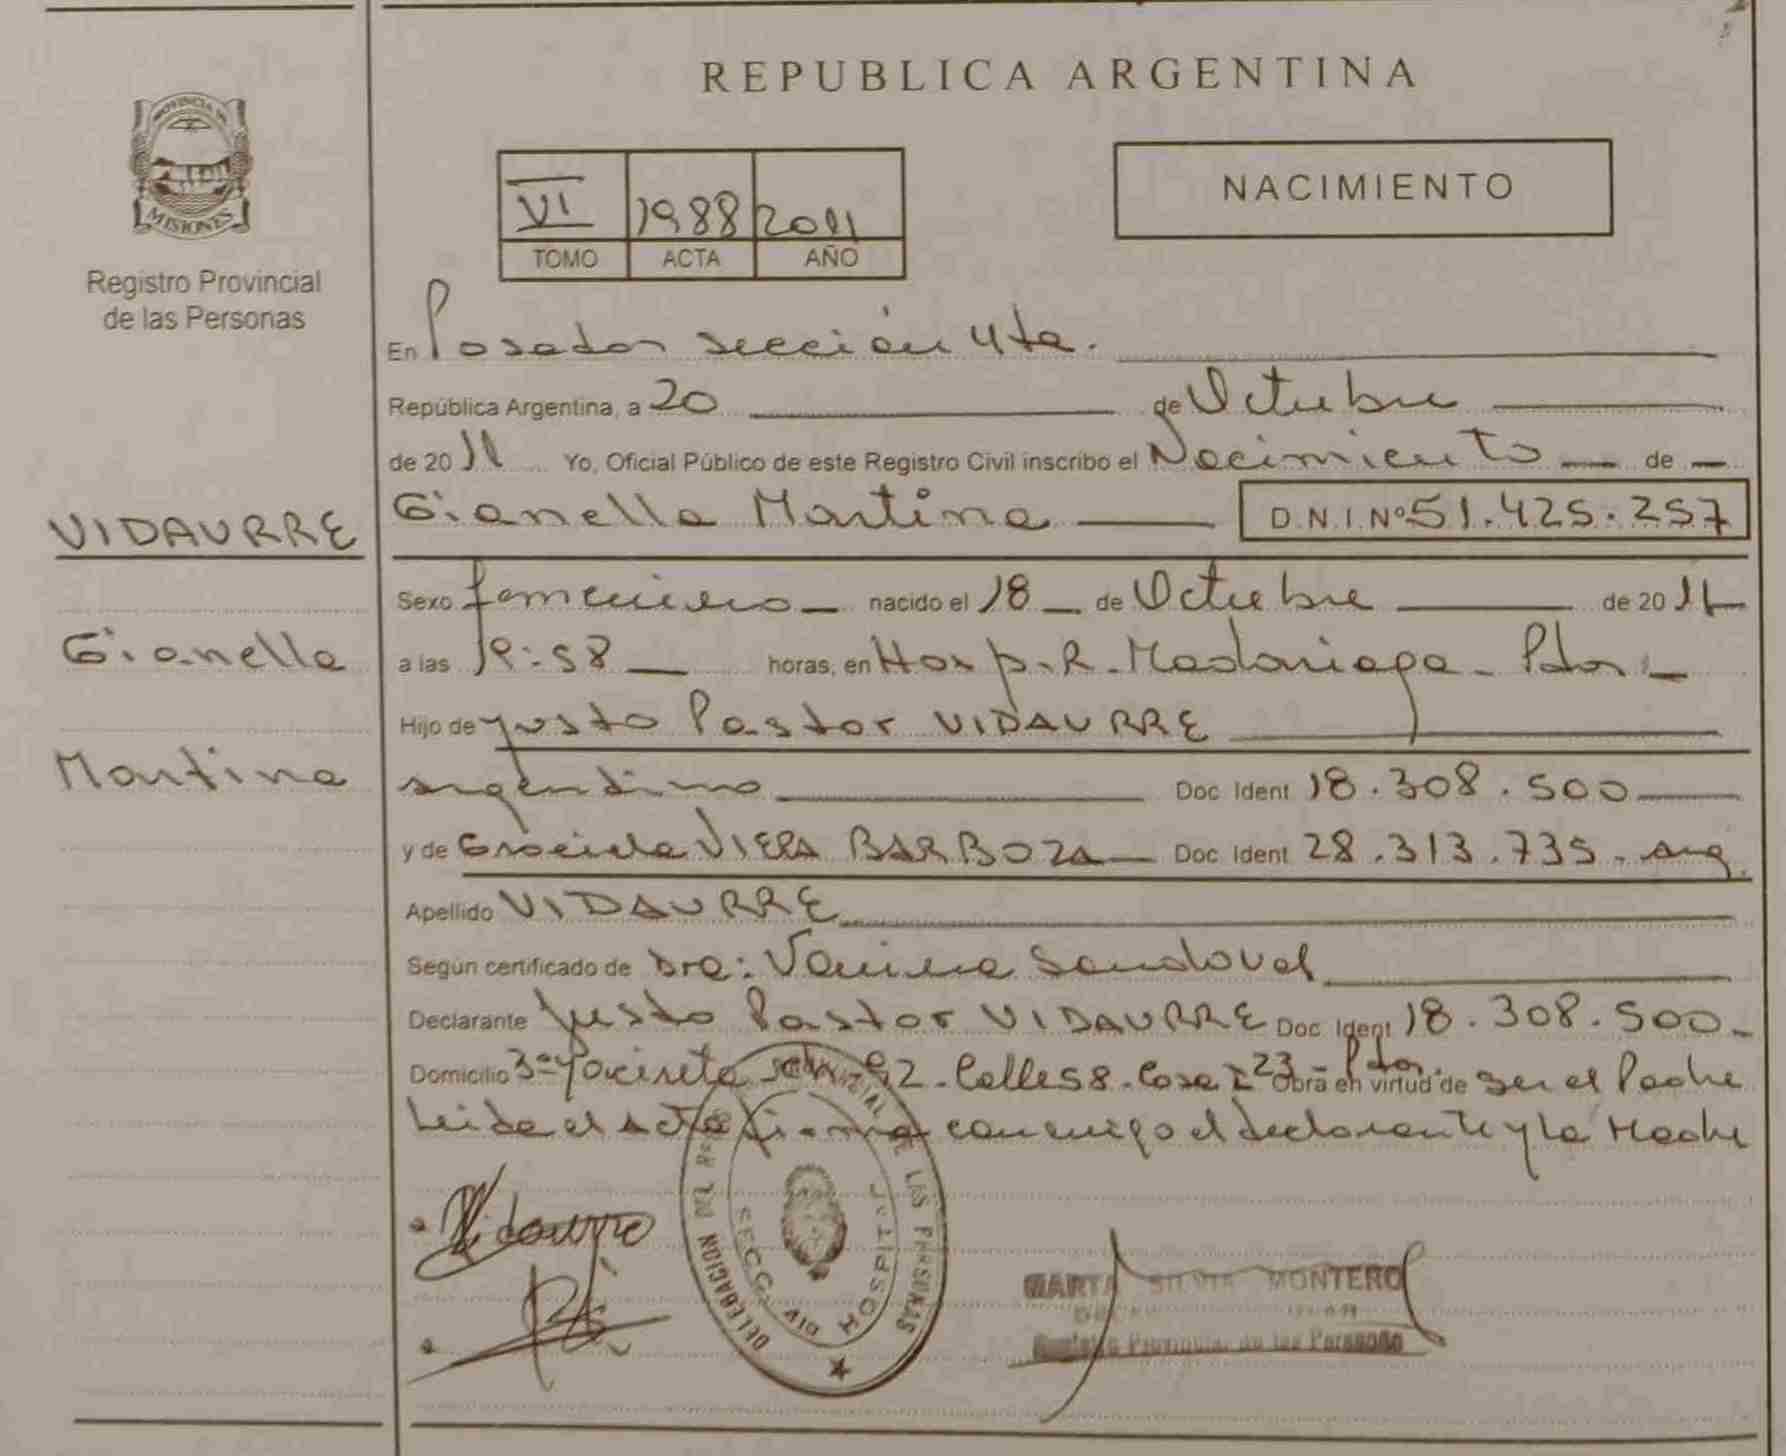 REPUBLICA ARGENTINA
PROVINCIA DE
MISIONES
Registro Provincial
de las Personas
NACIMIENTO
VI 1988 2011
TOMO ACTA AÑO
En Posadas sección 4ta.
República Argentina, a 20 de Octubre
de 2011 Yo, Oficial Público de este Registro Civil inscribo el Nacimiento de
VIDAURRE
Gianella Martina D.N.I. Nº 51.425.257
Sexo femenino nacido el 18 de Octubre de 2011
Gianella
a las 19:58 horas, en Hosp. R. Madariaga - Pdas
Hijo de Justo Pastor VIDAURRE
Martina
argentino Doc Ident 18.308.500
y de Graciela VIERA BARBOZA Doc Ident 28.313.735 - arg.
Apellido VIDAURRE
Según certificado de Dra: Vanina Sandoval
Declarante Justo Pastor VIDAURRE Doc Ident 18.308.500
Domicilio Calle 58 - Casa 23 - Pdas. Obra en virtud de ser el Padre
Leida el acta firma conmigo el declarante y la Madre
Vidaurre
DELEGACION DEL LAS PERSONAS
SECC. HOSPITAL
MARTA SILVIA MONTERO
Registro Provincial de las Personas